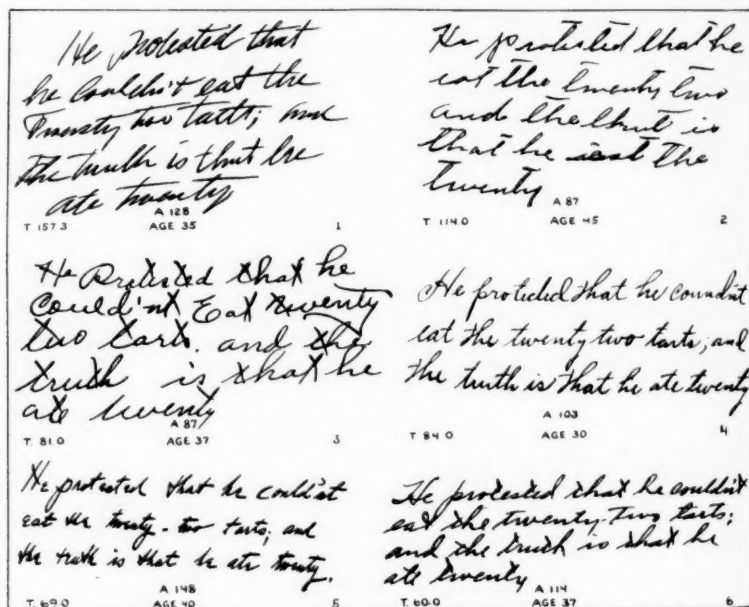 He protested that
he couldn't eat the
Twenty two tarts; and
the truth is that he
ate twenty
A 128
T 157.3 AGE 35 1
He protested that he
eat the twenty two
and the thrut is
that he eat the
twenty
A 87
T 114.0 AGE 45 2
He Protested that he
Could'nt Eat twenty
two tarts. and the
truth is that he
ate twenty
A 87
T. 81.0 AGE 37 3
He proteded that he cound'nt
eat the twenty two tarts; and
the truth is that he ate twenty
A 103
T. 84.0 AGE 30 4
He protested that he could'nt
eat the twenty-two tarts; and
the truth is that he ate twenty.
A 148
T. 69.0 AGE 40 5
He protested that he couldn't
eat the twenty-two tarts;
and the truth is that he
ate twenty
A 114
T. 60.0 AGE 37 6